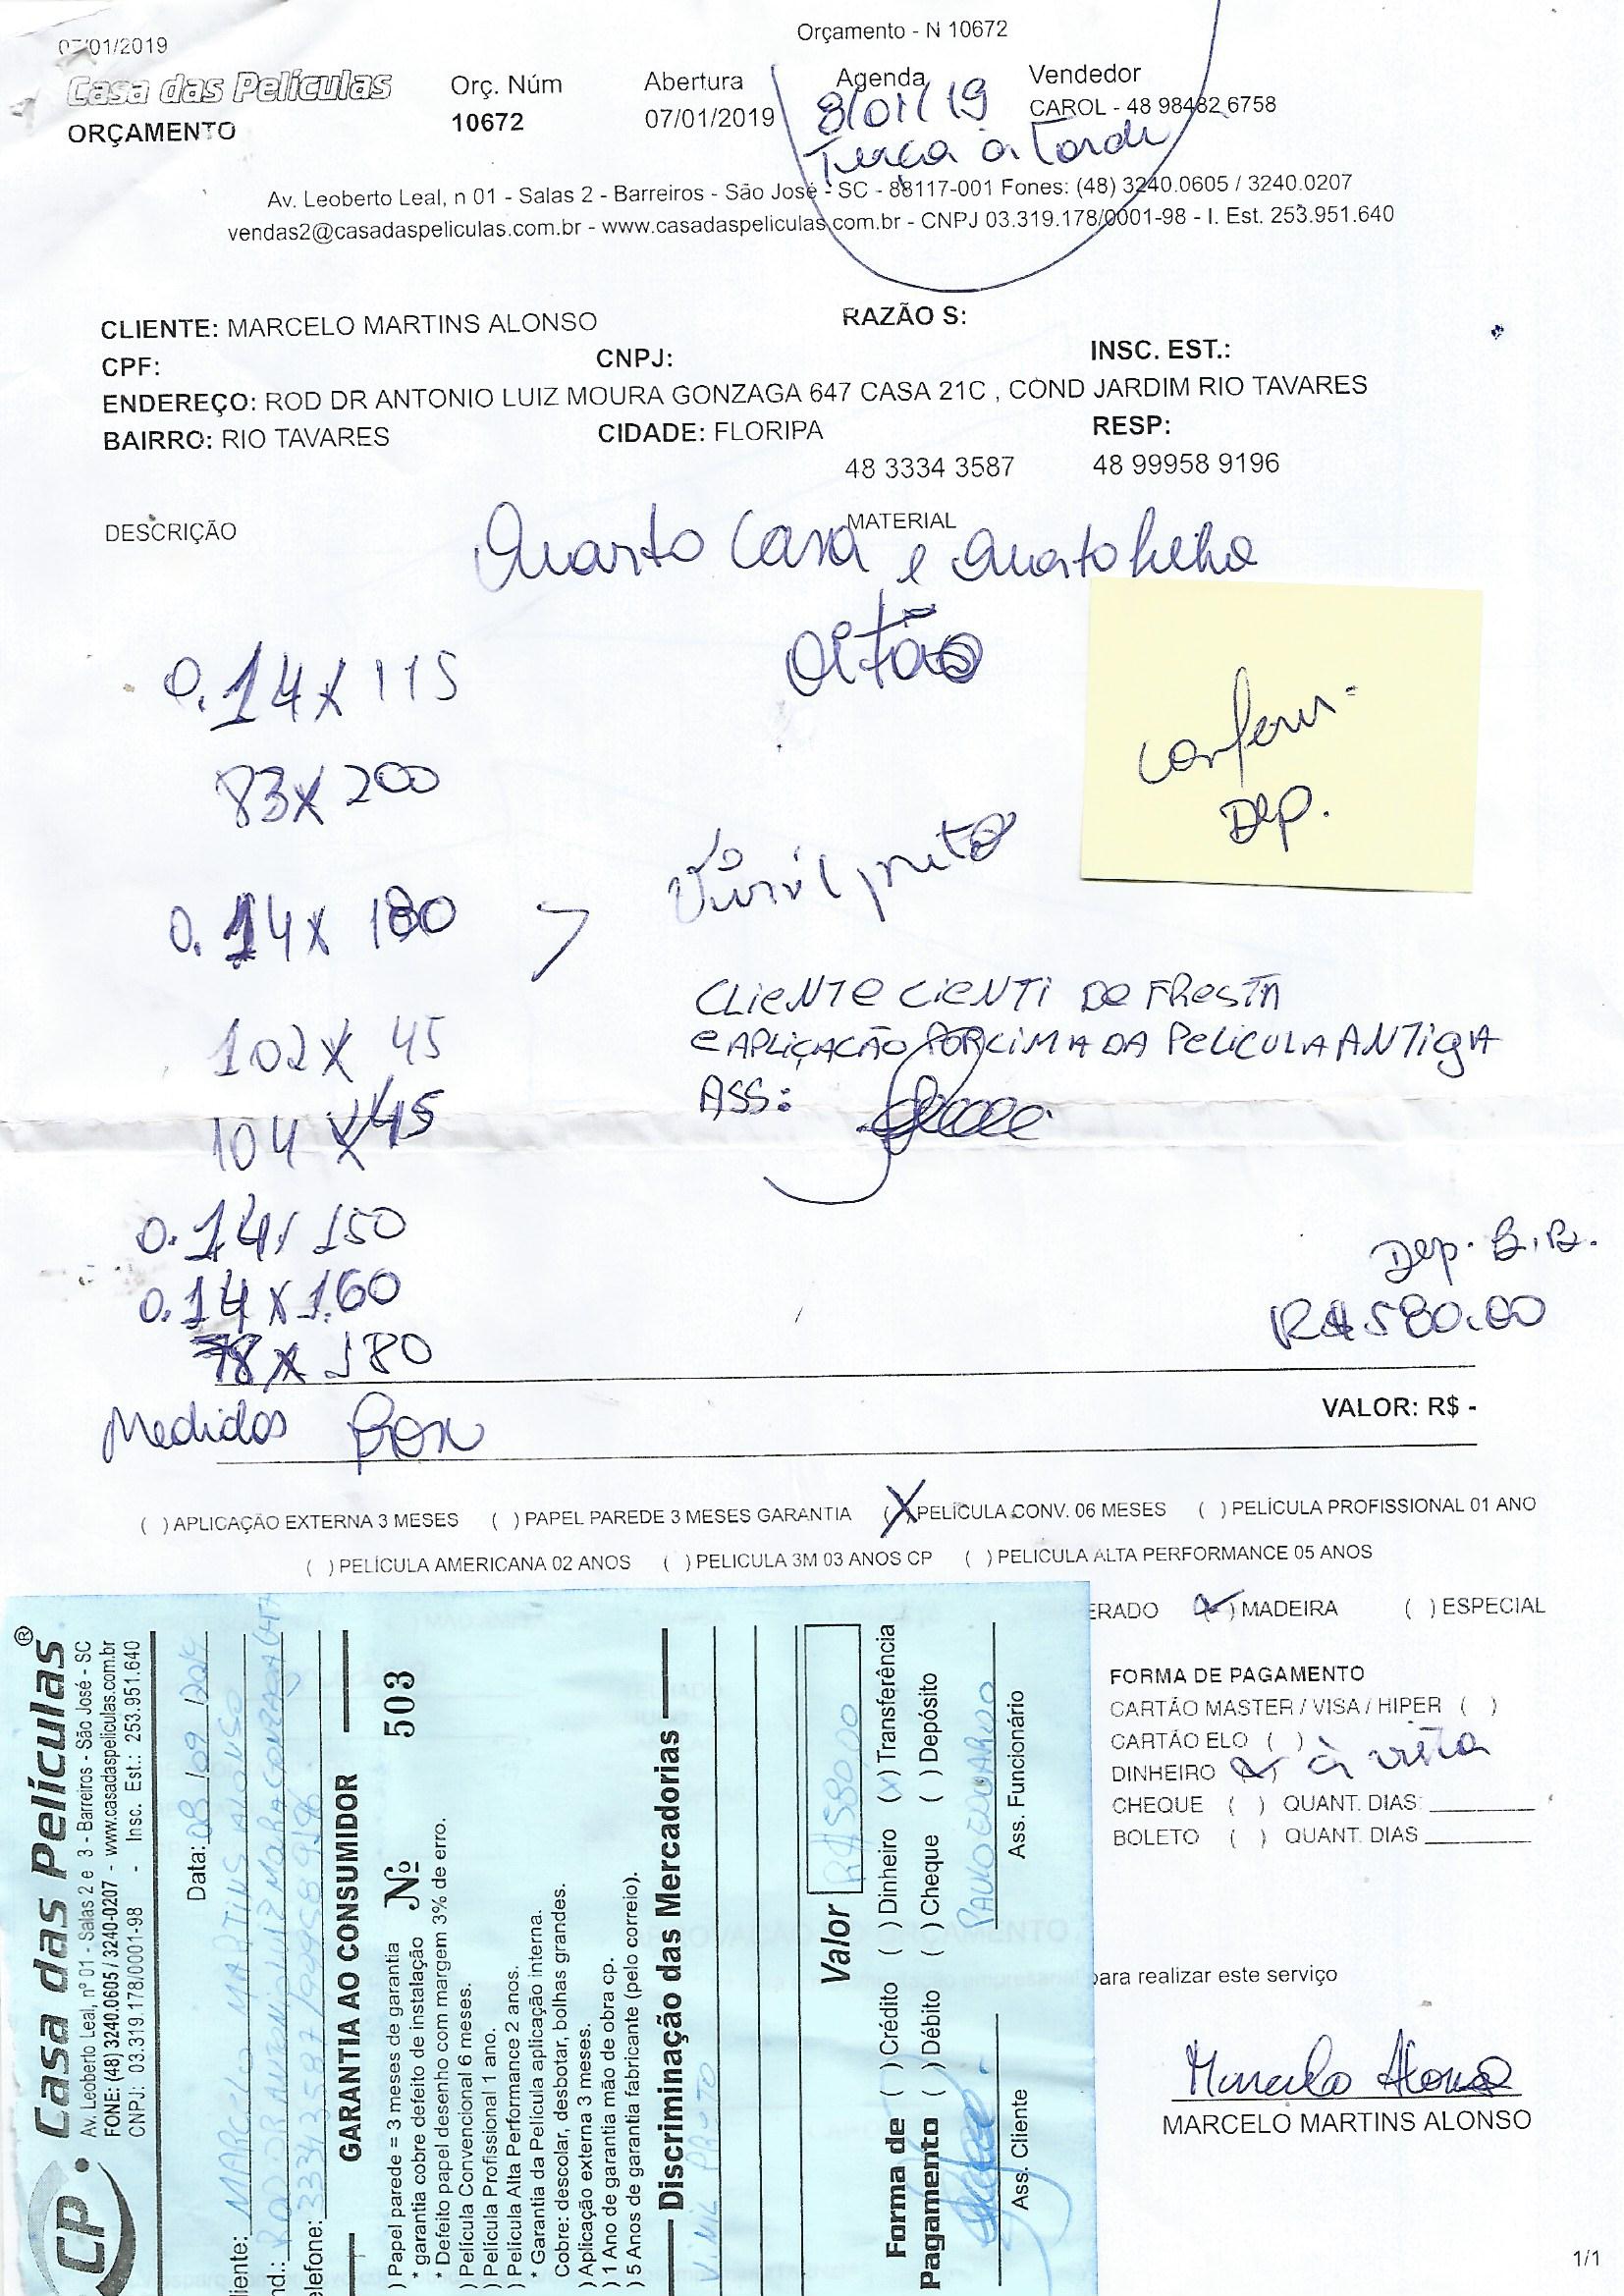 07/01/2019
Orçamento - N 10672
Casa das Películas
ORÇAMENTO
Orç. Núm
10672
Abertura
07/01/2019
Agenda
8/01/19
Terça a Tarde
Vendedor
CAROL - 48 98482 6758
Av. Leoberto Leal, n 01 - Salas 2 - Barreiros - São José - SC - 88117-001 Fones: (48) 3240.0605 / 3240.0207
vendas2@casadaspeliculas.com.br - www.casadaspeliculas.com.br - CNPJ 03.319.178/0001-98 - I. Est. 253.951.640
CLIENTE: MARCELO MARTINS ALONSO RAZÃO S:
CPF: CNPJ: INSC. EST.:
ENDEREÇO: ROD DR ANTONIO LUIZ MOURA GONZAGA 647 CASA 21C , COND JARDIM RIO TAVARES
BAIRRO: RIO TAVARES CIDADE: FLORIPA RESP:
48 3334 3587 48 99958 9196
DESCRIÇÃO MATERIAL
Quarto Casa e Quarto
Oitão
0.14 x 115
83 x 200
Conferir
Dep.
0.14 x 180 > Vinil preto
CLIENTE CIENTI DE FRESTA
E APLICAÇÃO POR CIMA DA PELICULA ANTIGA
ASS:
102 x 45
104 x 45
0.14 x 150
0.14 x 1.60
78 x 180
Dep. B.B.
R$ 580.00
VALOR: R$ -
Medidas Box
( ) APLICAÇÃO EXTERNA 3 MESES ( ) PAPEL PAREDE 3 MESES GARANTIA (X) PELÍCULA CONV. 06 MESES ( ) PELÍCULA PROFISSIONAL 01 ANO
( ) PELÍCULA AMERICANA 02 ANOS ( ) PELICULA 3M 03 ANOS CP ( ) PELICULA ALTA PERFORMANCE 05 ANOS
ERADO (x) MADEIRA ( ) ESPECIAL
FORMA DE PAGAMENTO
CARTÃO MASTER / VISA / HIPER ( )
CARTÃO ELO ( )
DINHEIRO (x) à vista
CHEQUE ( ) QUANT. DIAS:
BOLETO ( ) QUANT. DIAS
para realizar este serviço
Marcelo Alonso
MARCELO MARTINS ALONSO
1/1
CP. Casa das Películas®
Av. Leoberto Leal, nº 01 - Salas 2 e 3 - Barreiros - São José - SC
FONE: (48) 3240.0605 / 3240-0207 - www.casadaspeliculas.com.br
CNPJ: 03.319.178/0001-98 - Insc. Est.: 253.951.640
Data:
iente: MARCELO MARTINS ALONSO
nd.:
elefone: 3334 3587 / 99958 9196
GARANTIA AO CONSUMIDOR
Nº 503
) Papel parede = 3 meses de garantia
* garantia cobre defeito de instalação
* Defeito papel desenho com margem 3% de erro.
) Película Convencional 6 meses.
) Película Profissional 1 ano.
) Película Alta Performance 2 anos.
* Garantia da Película aplicação interna.
Cobre: descolar, desbotar, bolhas grandes.
) Aplicação externa 3 meses.
) 1 Ano de garantia mão de obra cp.
) 5 Anos de garantia fabricante (pelo correio).
Discriminação das Mercadorias
VINIL PRETO
Valor R$ 580,00
Forma de Pagamento
( ) Crédito ( ) Dinheiro (x) Transferência
( ) Débito ( ) Cheque ( ) Depósito
PAULO EDUARDO
Ass. Cliente Ass. Funcionário